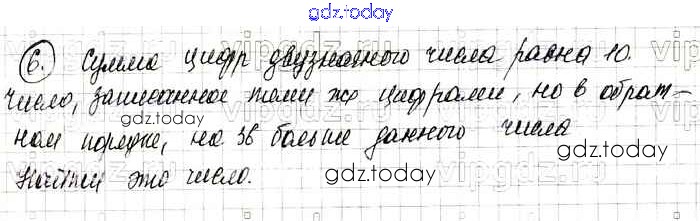 gdz.today
6. Сумма цифр двузначного числа равна 10.
Число, записанное теми же цифрами, но в обрат-
ном порядке, на 36 больше данного числа
Найти это число.
gdz.today
gdz.today
gdz.today
vipgdz.ru
vipgdz.ru
vipgdz.ru